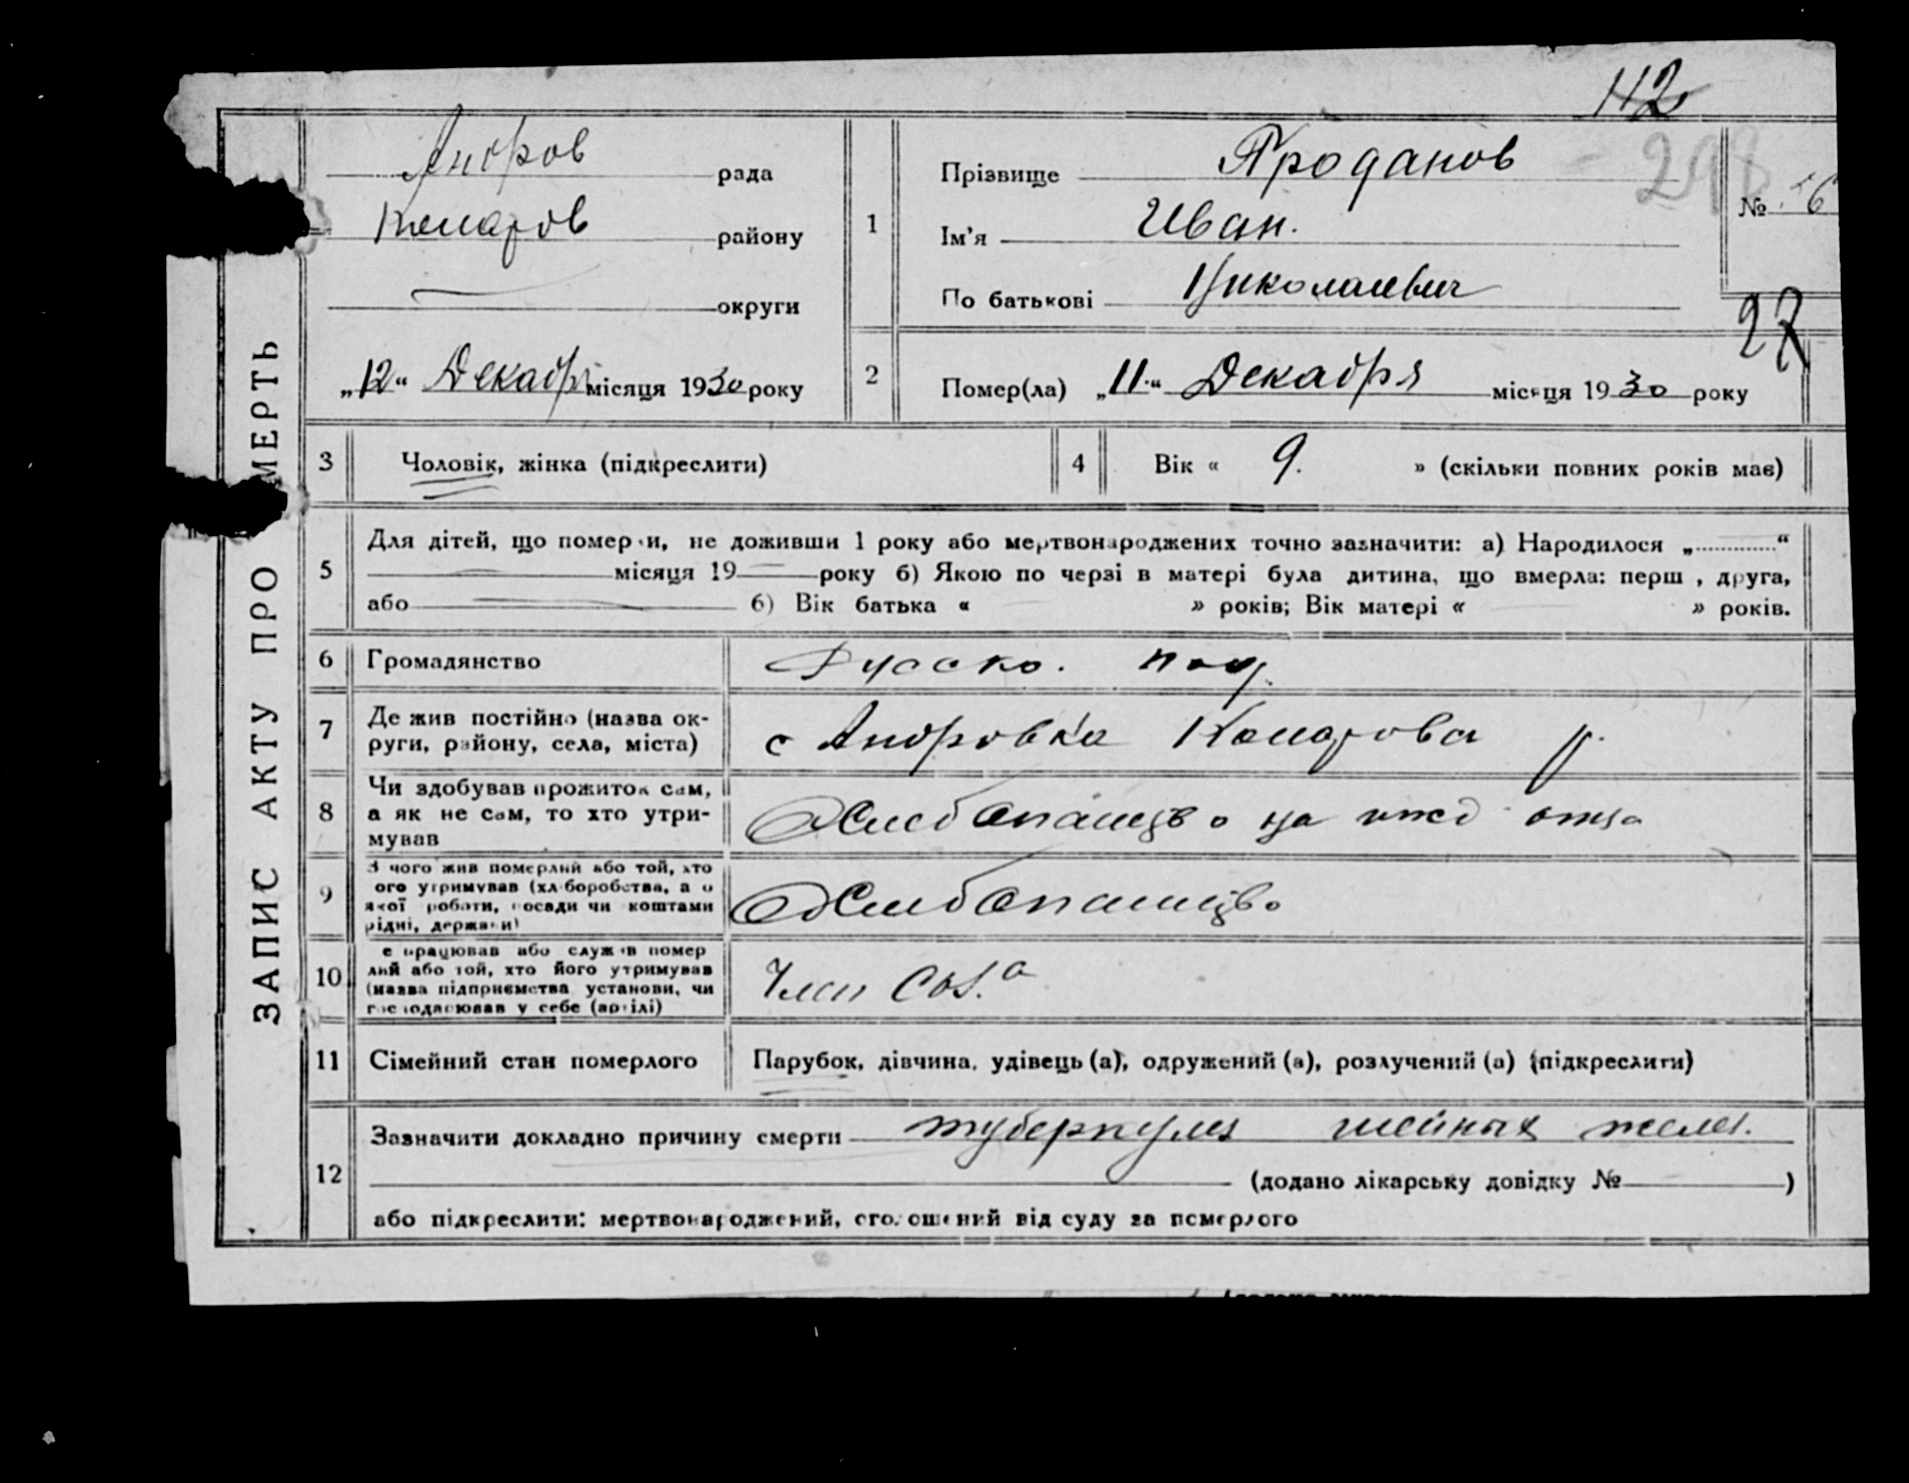 112
298
ЗАПИС АКТУ ПРО МЕРТЬ
рада
Комаров району
округи
„12“ Декабр місяця 1930 року
1
Прізвище Проданов
Ім'я Иван.
По батькові Николаевич
№ 6
27
2
Помер(ла) „11“ Декабря місяця 1930 року
3 Чоловік, жінка (підкреслити)
4 Вік « 9. » (скільки повних років має)
5 Для дітей, що померли, не доживши 1 року або мертвонароджених точно зазначити: а) Народилося „ “
місяця 19 року б) Якою по черзі в матері була дитина, що вмерла: перш , друга,
або б) Вік батька « » років; Вік матері « » років.
6 Громадянство Русско. под.
7 Де жив постійно (назва ок-
руги, району, села, міста)
с Комарова р.
8 Чи здобував прожиток сам,
а як не сам, то хто утри-
мував
Хлебопашцво на ижд отца
9 З чого жив померлий або той, хто
ого утримував (хліборобства, а о
якої роботи, посади чи коштами
рідні, держави)
Хлебопашцво
10 е працював або служив помер
лий або той, хто його утримував
(назва підприємства установи, чи
господарював у себе (артілі)
Член
11 Сімейний стан померлого Парубок, дівчина, удівець (а), одружений (а), розлучений (а) (підкреслити)
12 Зазначити докладно причину смерти туберкулез шейных желез.
(додано лікарську довідку № )
або підкреслити: мертвонароджений, оголошений від суду за померлого